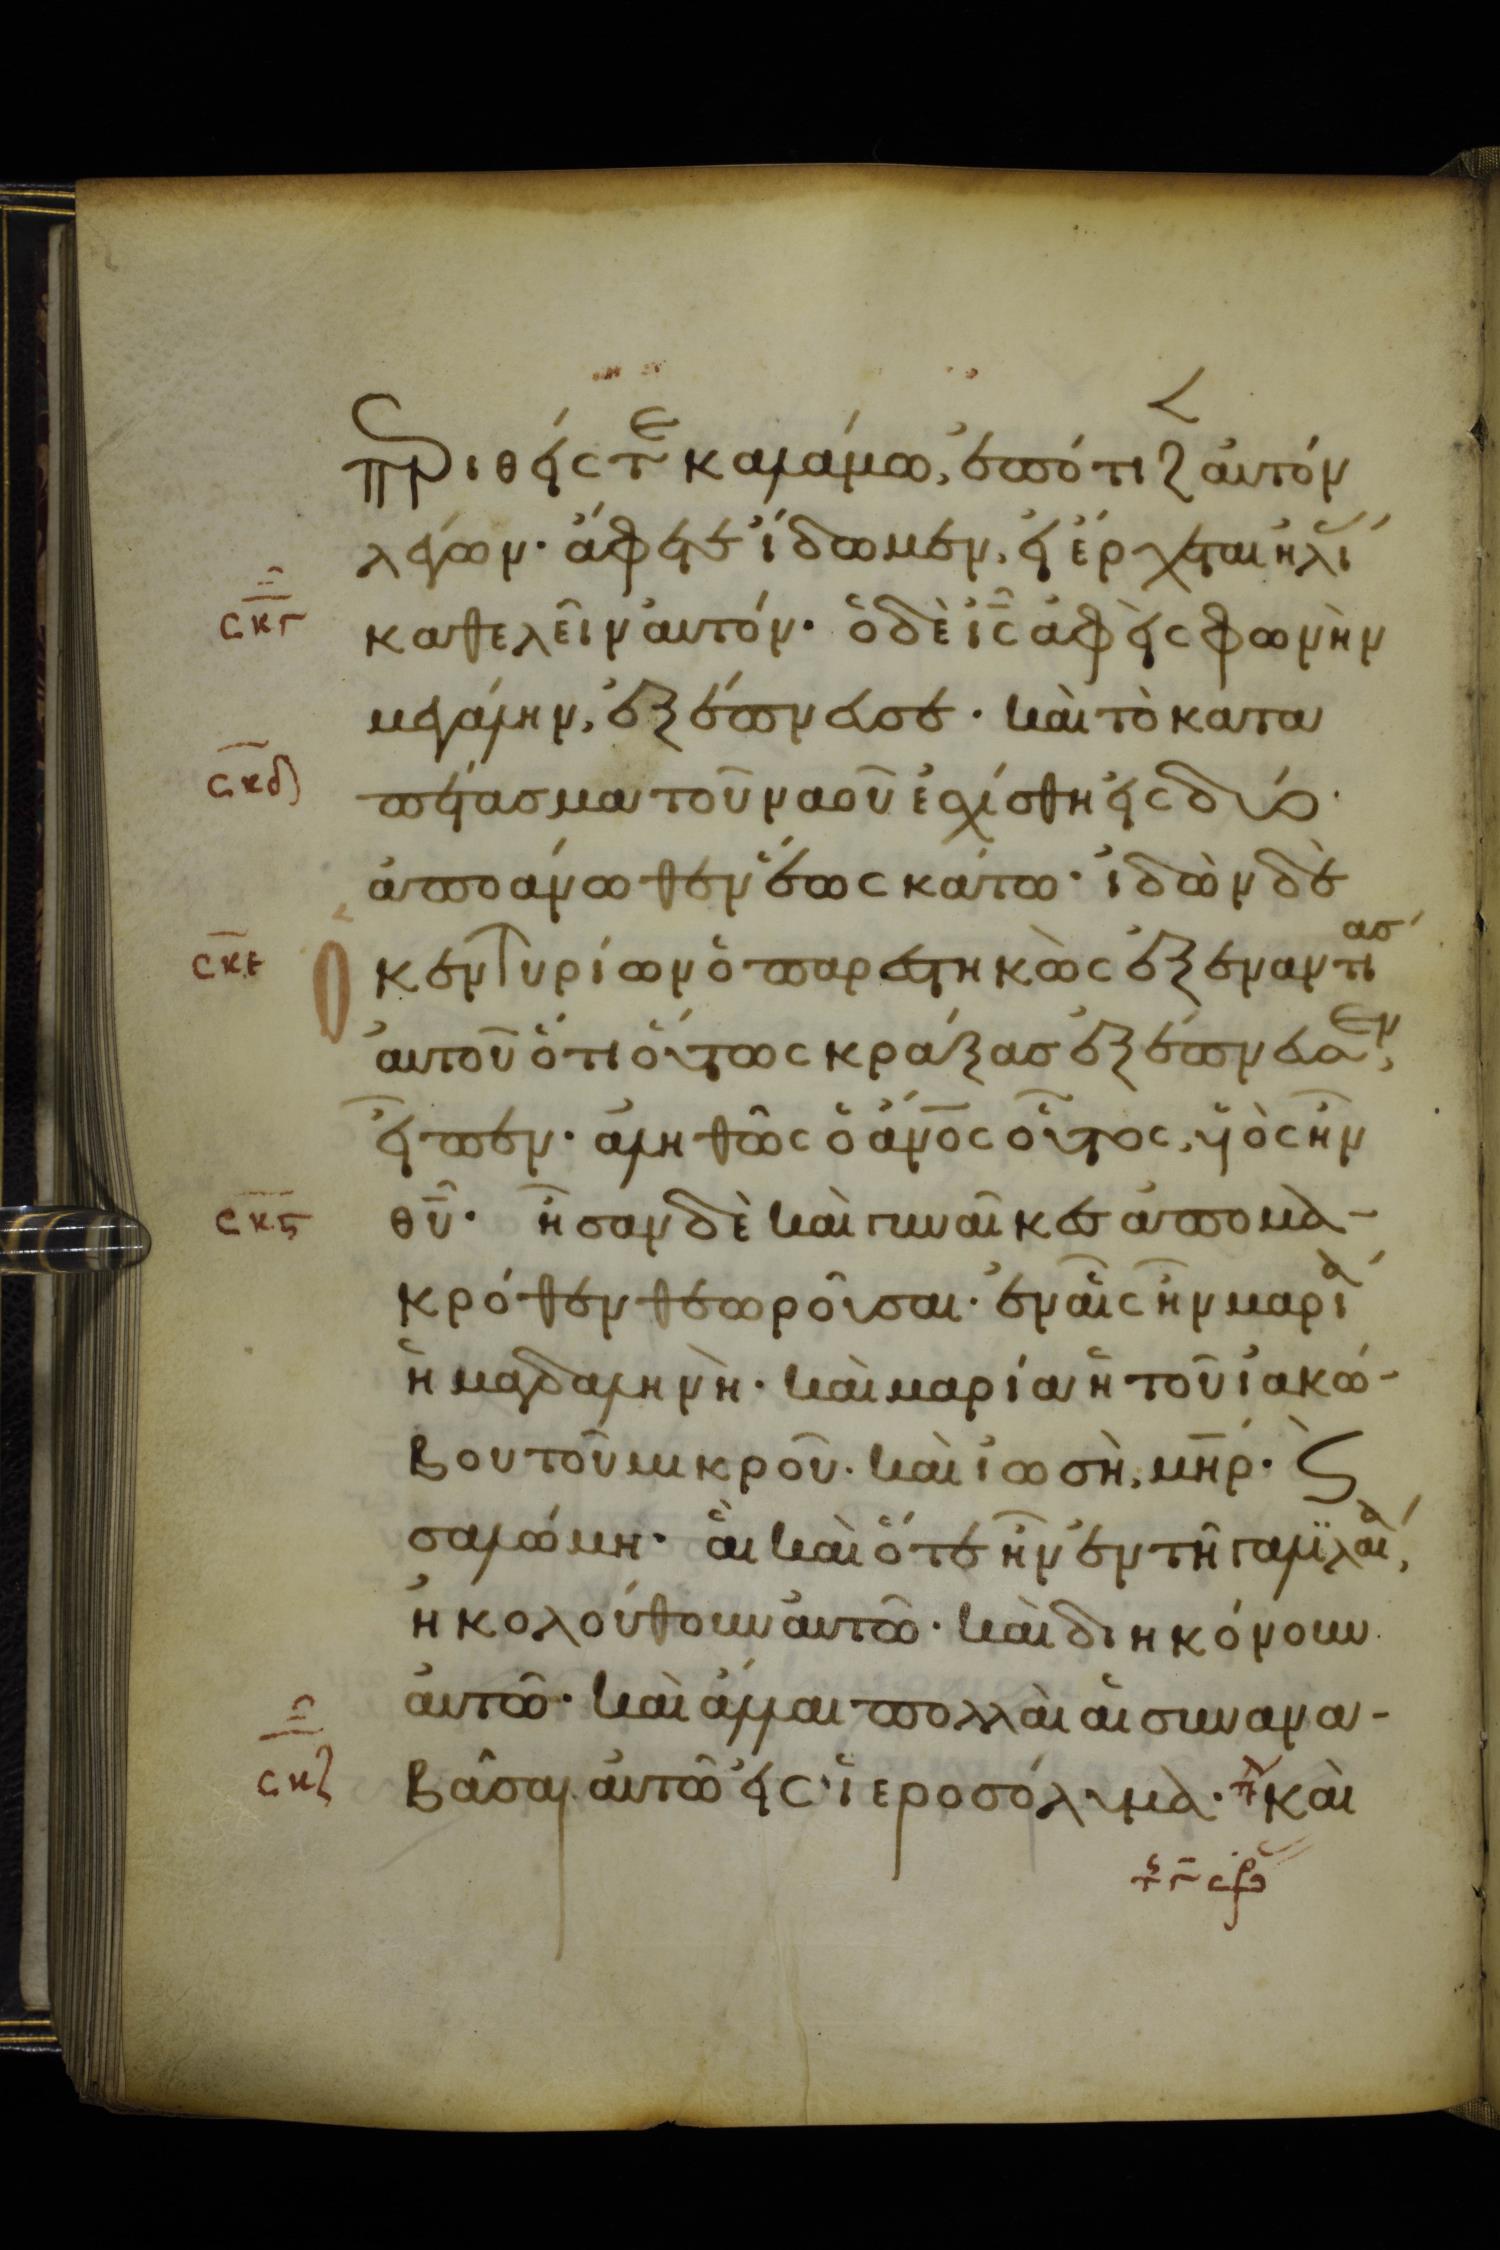 περιθείς τε καλάμω, ἐπότιζ αὐτόν
λέγων· ἄφετε ἴδωμεν, εἰ ἔρχεται ἠλί
σκγ
καθελεῖν αὐτόν· ὁ δὲ ἰς̅ ἀφεὶς φωνὴν
μεγάλην, ἐξέπνευσε· καὶ τὸ κατα
σκδ
πέτασμα τοῦ ναοῦ ἐσχίσθη εἰς δύο·
ἀπὸ ἄνωθεν ἕως κάτω· ἰδὼν δὲ
σκε
ὁ κεντυρίων ὁ παρεστηκὼς ἐξεναντίας
αὐτοῦ ὅτι οὕτως κράξας ἐξέπνευσεν,
εἶπεν· ἀληθῶς ὁ ἄνο̅ς οὗτος, υἱὸς ἦν
σκϛ
θυ̅· ἦσαν δὲ καὶ γυναῖκες ἀπὸ μα-
κρόθεν θεωροῦσαι· ἐν αἷς ἦν μαρία
ἡ μαγδαληνὴ· καὶ μαρία ἡ τοῦ ἰακώ-
βου τοῦ μικροῦ· καὶ ἰωσὴ, μη̅ρ· ϗ
σαλώμη· αἳ καὶ ὅτε ἦν ἐν τῇ γαλιλαία,
ἠκολούθουν αὐτῶ· καὶ διηκόνουν
αὐτῶ· καὶ ἄλλαι πολλαὶ αἱ συνανα-
σκζ
βᾶσαι αὐτῶ εἰς ἱεροσόλυμα· καὶ